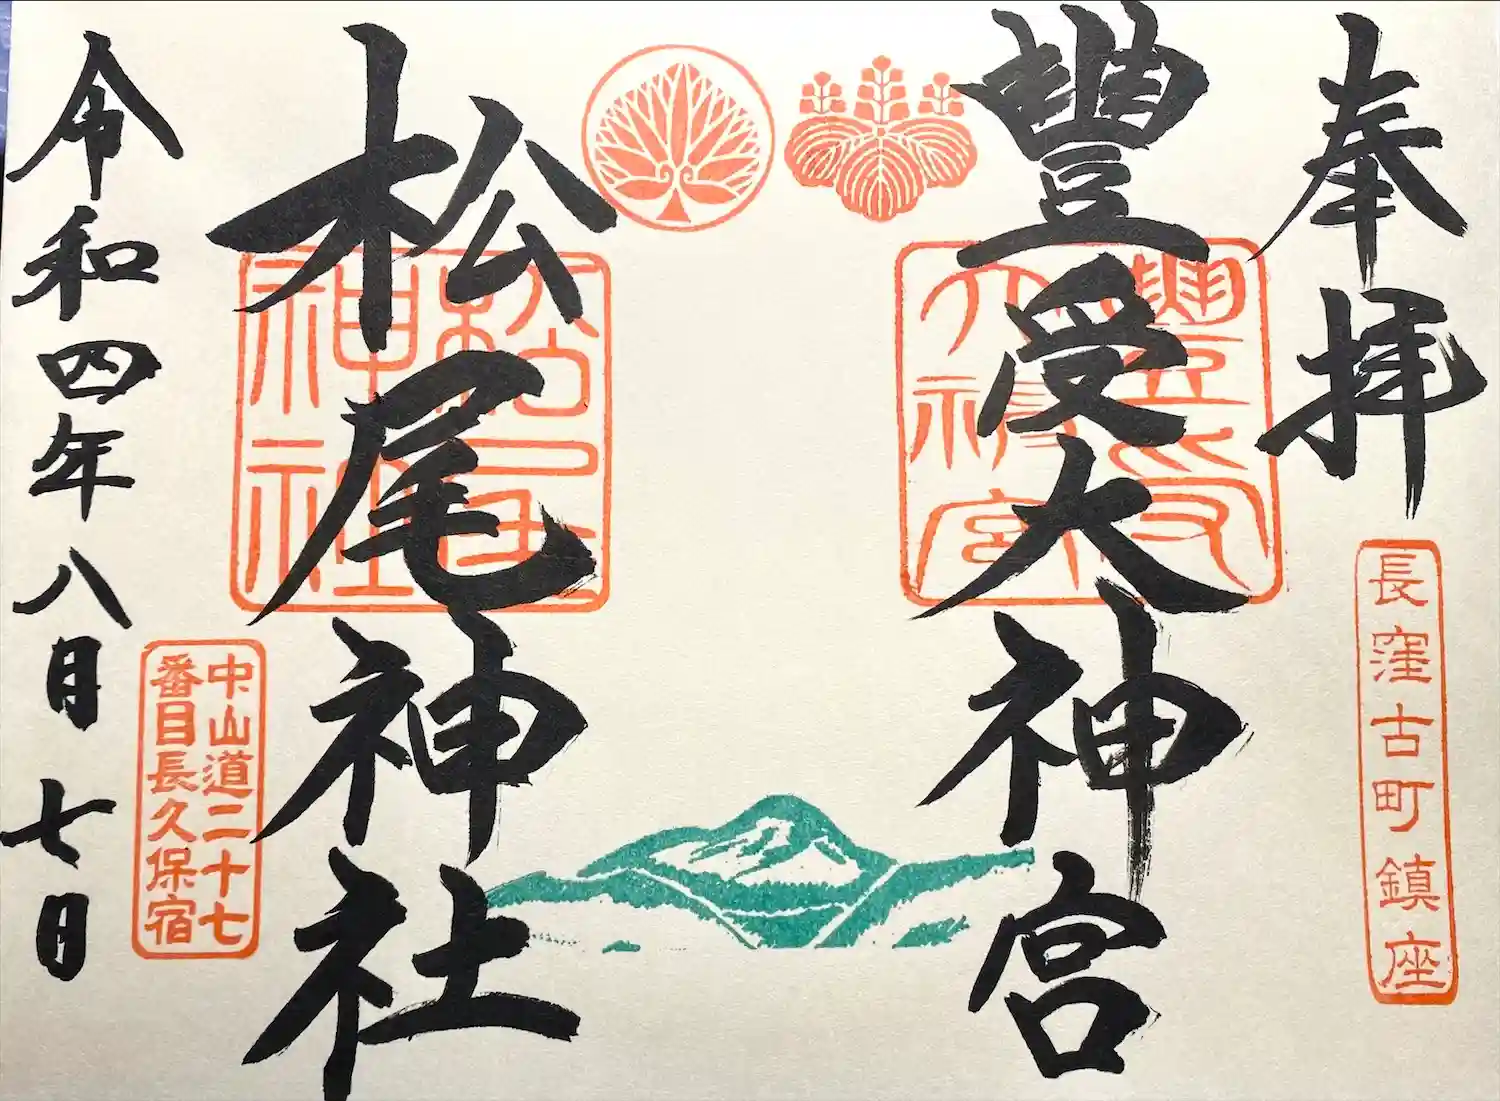 奉拝
長窪古町鎮座
豐受大神宮
豐受大神宮
松尾神社
松尾神社
中山道二十七
番目長久保宿
令和四年八月七日